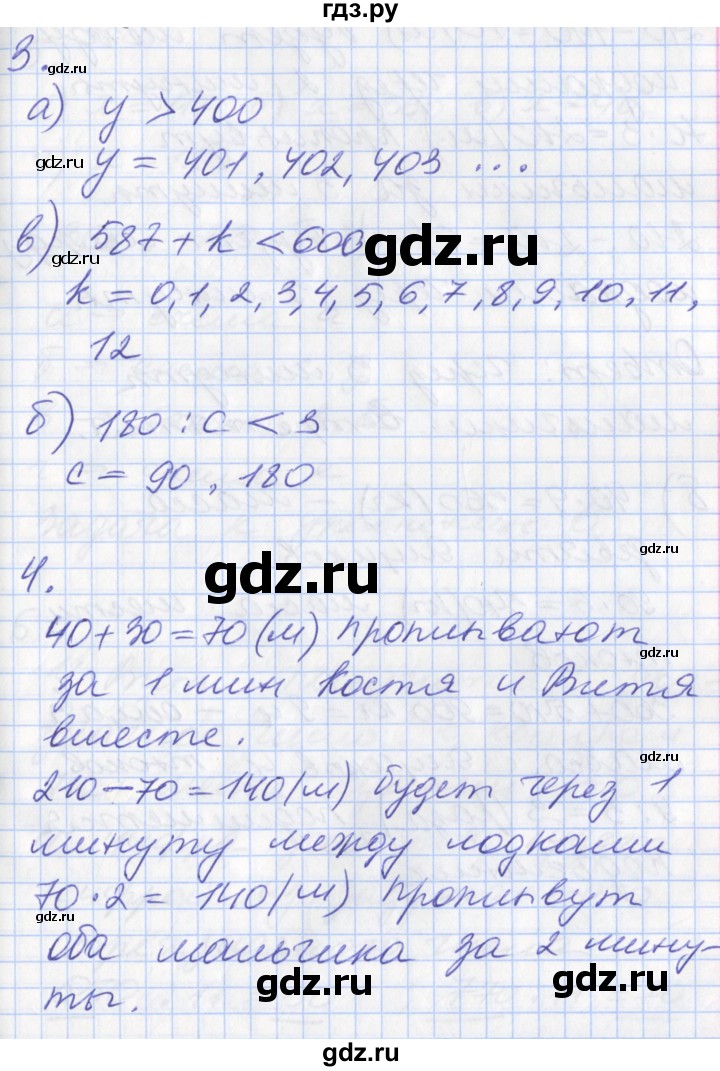 гдз.ру
3.
gdz.ru
а) y > 400
gdz.ru
y = 401, 402, 403 ...
в) 587 + k < 600
gdz.ru
gdz.ru
k = 0, 1, 2, 3, 4, 5, 6, 7, 8, 9, 10, 11,
12
б) 180 : c < 3
c = 90, 180
gdz.ru
gdz.ru
4.
40 + 30 = 70 (м) проплывают
gdz.ru
за 1 мин Костя и Витя
вместе.
gdz.ru
210 - 70 = 140 (м) будет через 1
минуту между лодками
70 · 2 = 140 (м) проплывут
gdz.ru
оба мальчика за 2 мину-
gdz.ru
gdz.ru
ты.
gdz.ru